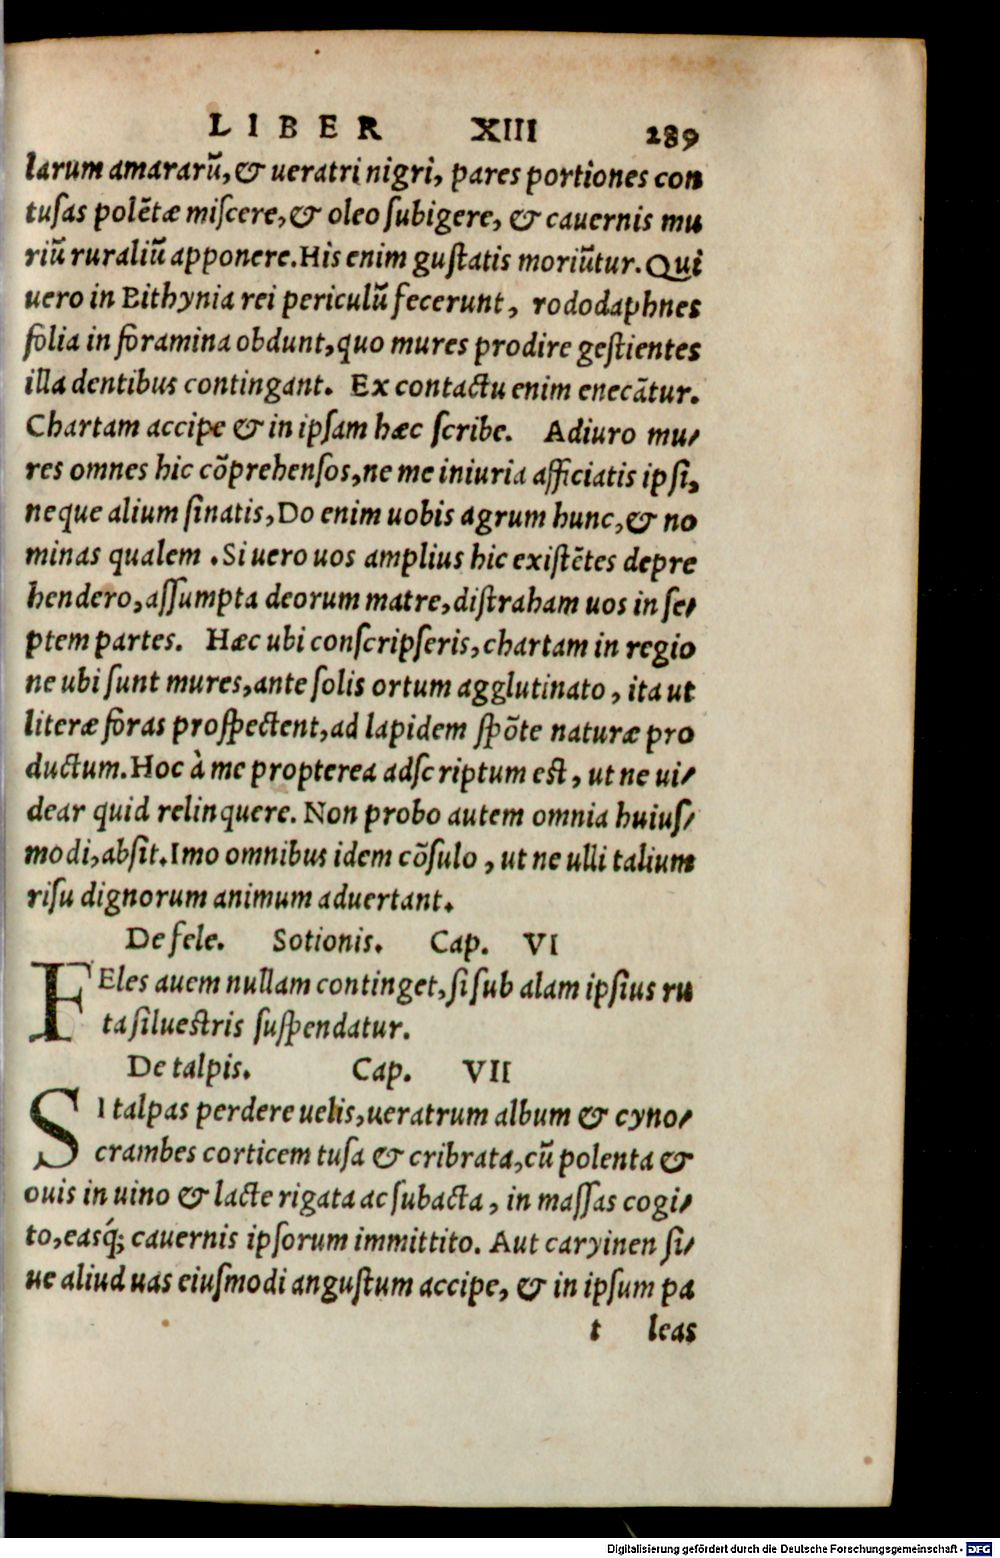 LIBER XIII 289
larum amararũ, & ueratri nigri, pares portiones con
tusas polẽtæ miscere, & oleo subigere, & cauernis mu
riũ ruraliũ apponere. His enim gustatis moriũtur. Qui
uero in Bithynia rei periculũ fecerunt, rododaphnes
folia in foramina obdunt, quo mures prodire gestientes
illa dentibus contingant. Ex contactu enim enecãtur.
Chartam accipe & in ipsam hæc scribe. Adiuro mu-
res omnes hic cõprehensos, ne me iniuria afficiatis ipsi,
neque alium sinatis, Do enim uobis agrum hunc, & no
minas qualem. Si uero uos amplius hic existẽtes depre
hendero, assumpta deorum matre, distraham uos in se-
ptem partes. Hæc ubi conscripseris, chartam in regio
ne ubi sunt mures, ante solis ortum agglutinato, ita ut
literæ foras prospectent, ad lapidem spõte naturæ pro
ductum. Hoc à me propterea adscriptum est, ut ne ui-
dear quid relinquere. Non probo autem omnia huius-
modi, absit. Imo omnibus idem cõsulo, ut ne ulli talium
risu dignorum animum aduertant.
De fele. Sotionis. Cap. VI
FEles auem nullam continget, si sub alam ipsius ru
ta siluestris suspendatur.
De talpis. Cap. VII
SI talpas perdere uelis, ueratrum album & cyno-
crambes corticem tusa & cribrata, cũ polenta &
ouis in uino & lacte rigata ac subacta, in massas cogi-
to, easq́; cauernis ipsorum immittito. Aut caryinen si-
ue aliud uas eiusmodi angustum accipe, & in ipsum pa
t leas
Digitalisierung gefördert durch die Deutsche Forschungsgemeinschaft - DFG